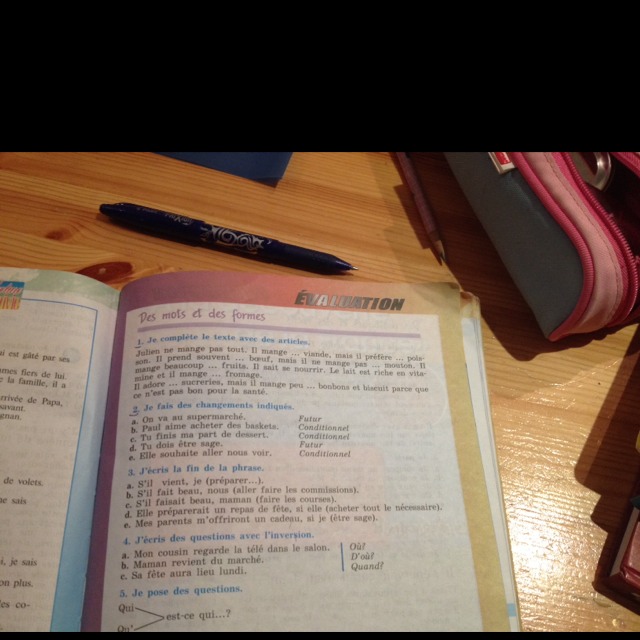 ÉVALUATION
Des mots et des formes
1. Je complète le texte avec des articles.
Julien ne mange pas tout. Il mange ... viande, mais il préfère ... pois-
son. Il prend souvent ... bœuf, mais il ne mange pas ... mouton. Il
mange beaucoup ... fruits. Il sait se nourrir. Le lait est riche en vita-
mine et il mange ... fromage.
Il adore ... sucreries, mais il mange peu ... bonbons et biscuit parce que
ce n'est pas bon pour la santé.
2. Je fais des changements indiqués.
a. On va au supermarché. Futur
b. Paul aime acheter des baskets. Conditionnel
c. Tu finis ma part de dessert. Conditionnel
d. Tu dois être sage. Futur
e. Elle souhaite aller nous voir. Conditionnel
3. J'écris la fin de la phrase.
a. S'il vient, je (préparer...).
b. S'il fait beau, nous (aller faire les commissions).
c. S'il faisait beau, maman (faire les courses).
d. Elle préparerait un repas de fête, si elle (acheter tout le nécessaire).
e. Mes parents m'offriront un cadeau, si je (être sage).
4. J'écris des questions avec l'inversion.
a. Mon cousin regarde la télé dans le salon. Où?
b. Maman revient du marché. D'où?
c. Sa fête aura lieu lundi. Quand?
5. Je pose des questions.
Qui
est-ce qui...?
Qu'
est gâté par ses
fiers de lui.
la famille, il a
arrivée de Papa,
avant.
de volets.
ne sais
je sais
on plus.
co-